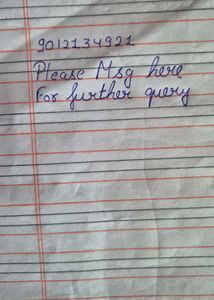 9012134921
Please Msg here
For further query